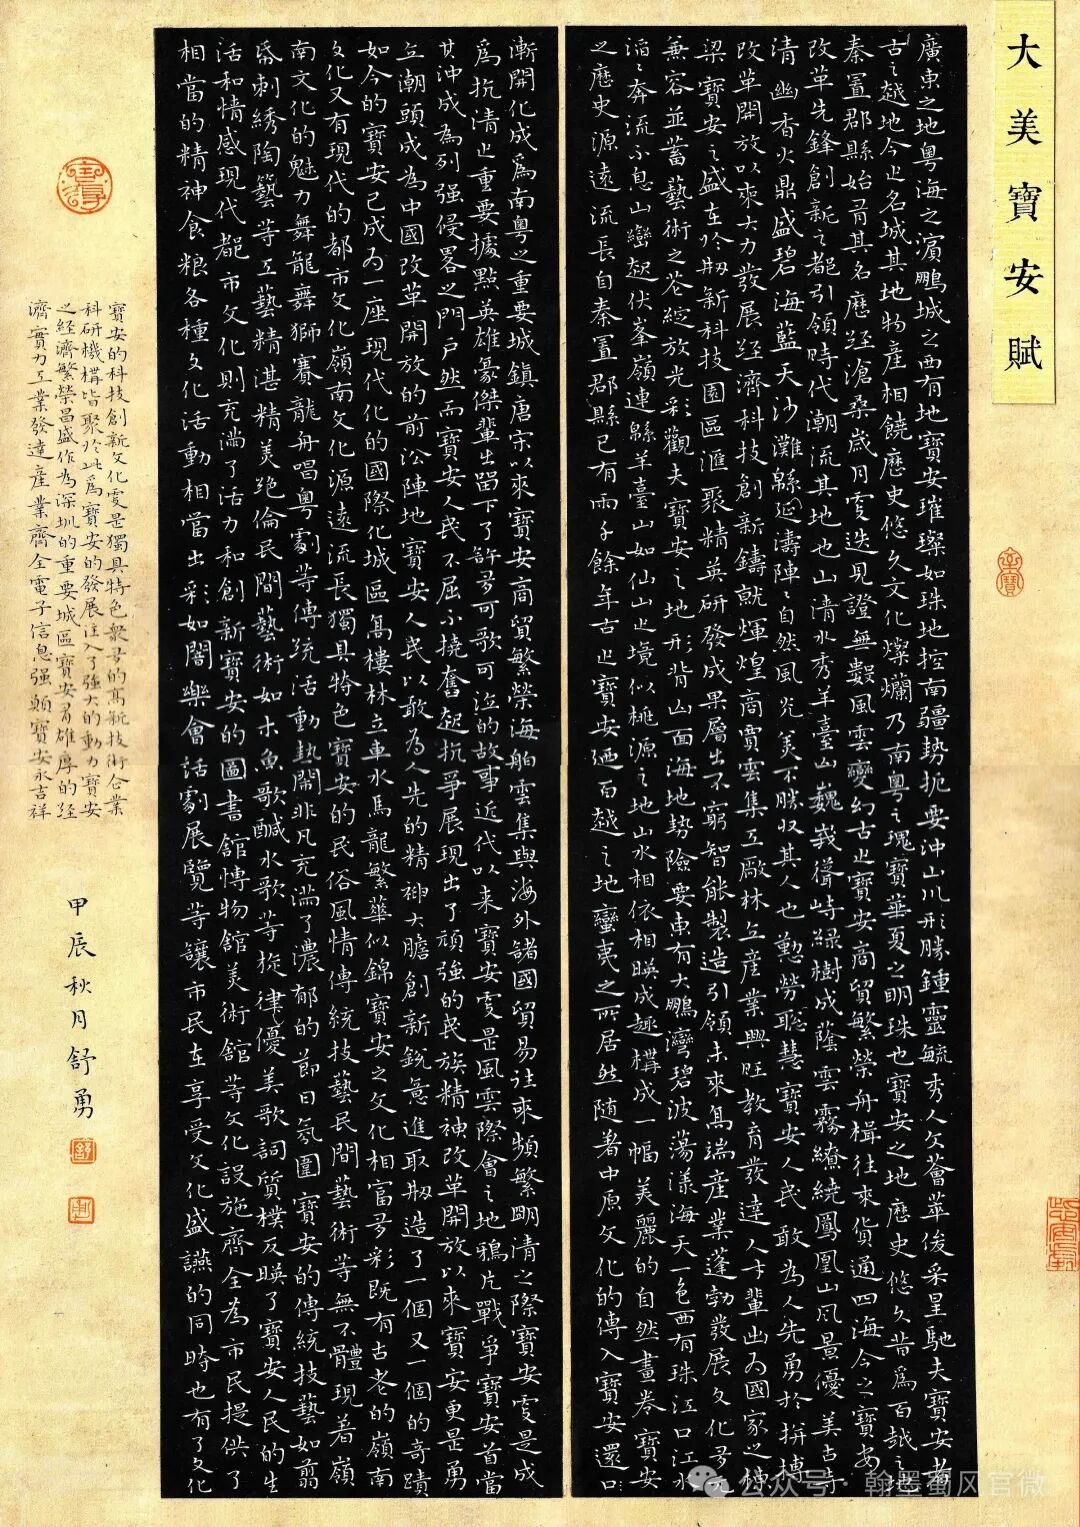 大美寶安賦
廣東之地粵海之濱鵬城之西有地寶安璀璨如珠地控南疆勢扼要沖山川形勝鍾靈毓秀人文薈萃俊采星馳夫寶安者
古之越地今之名城其地物產相饒歷史悠久文化燦爛乃南粵之瑰寶華夏之明珠也寶安之地歷史悠久昔爲百越之地
秦置郡縣始有其名歷經滄桑歲月變迭見證無數風雲變幻古之寶安商貿繁榮舟楫往來貨通四海今之寶安
改革先鋒創新之都引領時代潮流其地也山清水秀羊臺山巍峩聳峙綠樹成蔭雲霧繚繞鳳凰山風景優美古寺
清幽香火鼎盛碧海藍天沙灘緜延濤陣陣自然風光美不勝収其人也勤勞聡慧寶安人民敢為人先勇於拚搏
改革開放以來大力發展經濟科技創新鑄就煇煌商賈雲集工廠林立産業興旺教育發達人才輩出為國家之棟
梁寶安之盛在於刱新科技園區滙聚精英研發成果層出不窮智能製造引領未來高端産業蓬勃發展文化多元
兼容並蓄藝術之花綻放光彩觀夫寶安之地形背山面海地勢險要東有大鵬灣碧波蕩漾海天一色西有珠江口江水
滔滔奔流不息山巒起伏峯嶺連緜羊臺山如仙山之境似桃源之地山水相依相暎成趣構成一幅美麗的自然畫卷寶安
之歷史源遠流長自秦置郡縣已有兩千餘年古之寶安廼百越之地蠻夷之所居然随著中原文化的傳入寶安還口
漸開化成爲南粵之重要城鎮唐宋以來寶安商貿繁榮海舶雲集與海外諸國貿易往來頻繁明清之際寶安更是成
爲抗清之重要據點英雄豪傑輩出畱下了許多可歌可泣的故事近代以来寶安更是風雲際會之地鴉片戰爭寶安首當
其沖成為列强侵畧之門户然而寶安人民不屈不撓奮起抗爭展現出了頑強的民族精神改革開放以來寶安更是勇
立潮頭成為中國改革開放的前沿陣地寶安人民以敢為人先的精神大膽創新銳意進取刱造了一個又一個的奇蹟
如今的寶安已成為一座現代化的國際化城區高樓林立車水馬龍繁華似錦寶安之文化相富多彩既有古老的嶺南
文化又有現代的都市文化嶺南文化源遠流長獨具特色寶安的民俗風情傳統技藝民間藝術等無不體現着嶺
南文化的魅力舞龍舞獅賽龍舟唱粵劇等傳統活動熱鬧非凡充滿了濃郁的節日氛圍寶安的傳統技藝如剪
紙刺綉陶藝等工藝精湛精美絶倫民間藝術如木魚歌鹹水歌等旋律優美歌詞質樸反暎了寶安人民的生
活和情感現代都市文化則充滿了活力和創新寶安的圖書館愽物館美術館等文化設施齊全為市民提供了
相當的精神食粮各種文化活動相當出彩如閣樂會話劇展覽等讓市民在享受文化盛讌的同時也有了文化
寶安的科技創新文化更是獨具特色衆多的高新技術企業
科研機構皆聚於此爲寶安的發展注入了強大的動力寶安
之經濟繁榮昌盛作為深圳的重要城區寶安有雄厚的經
濟實力工業發達産業齊全電子信息强願寶安永吉祥
甲辰秋月舒勇
公众号·翰墨蜀风官微